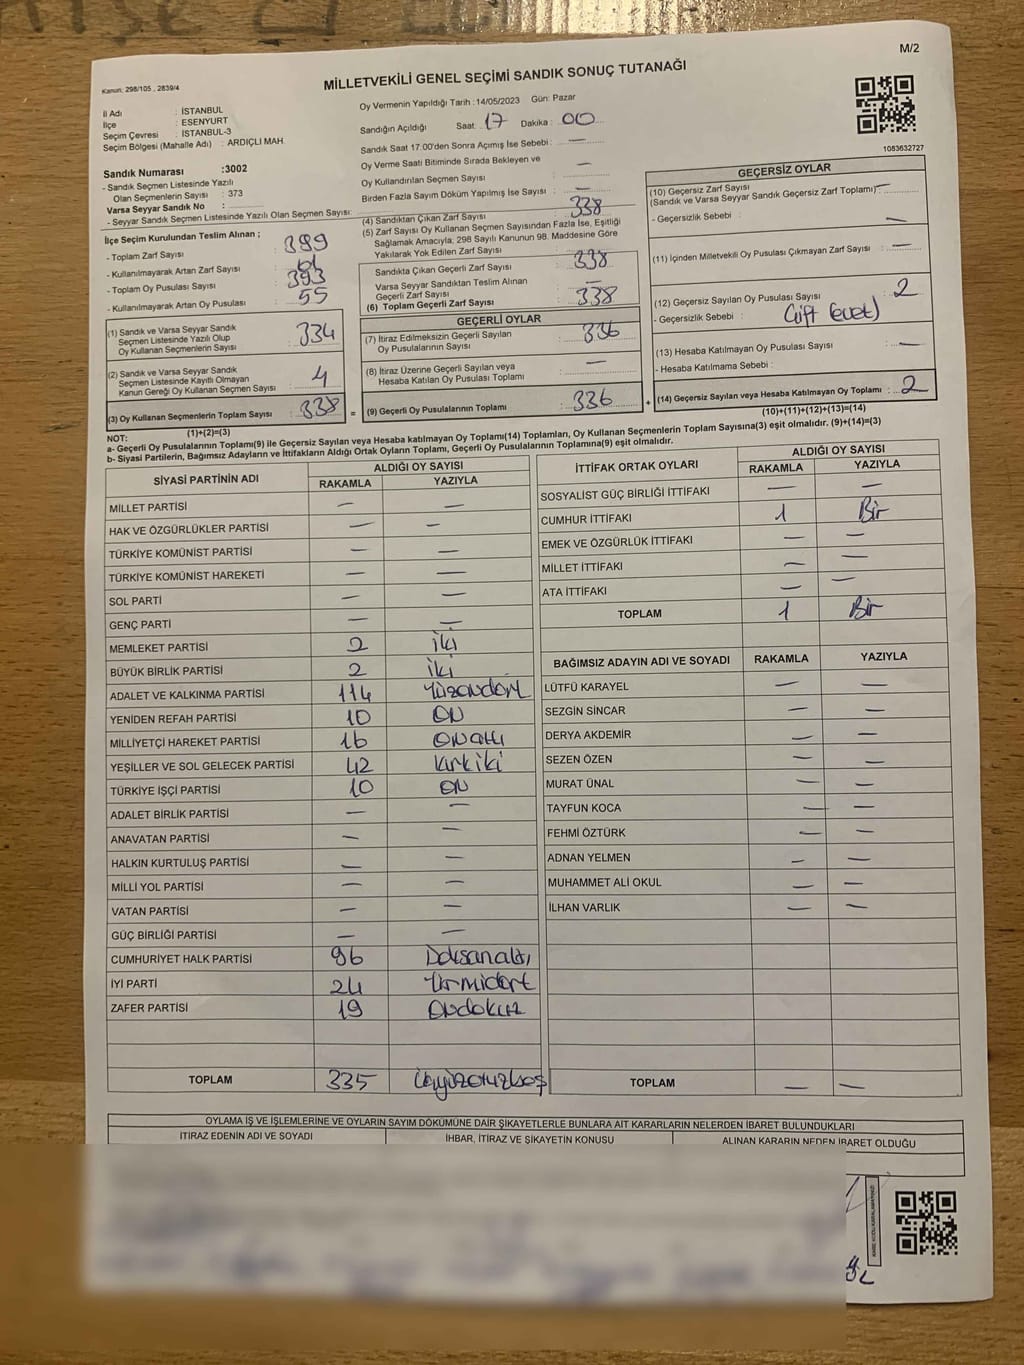 M/2
Kanun: 298/105 , 2839/4
MİLLETVEKİLİ GENEL SEÇİMİ SANDIK SONUÇ TUTANAĞI
İl Adı : İSTANBUL
İlçe : ESENYURT
Seçim Çevresi : İSTANBUL-3
Seçim Bölgesi (Mahalle Adı) : ARDIÇLI MAH
Sandık Numarası :3002
- Sandık Seçmen Listesinde Yazılı
Olan Seçmenlerin Sayısı : 373
Varsa Seyyar Sandık No :
- Seyyar Sandık Seçmen Listesinde Yazılı Olan Seçmen Sayısı:
İlçe Seçim Kurulundan Teslim Alınan ;
- Toplam Zarf Sayısı 399
- Kullanılmayarak Artan Zarf Sayısı 61
- Toplam Oy Pusulası Sayısı 393
- Kullanılmayarak Artan Oy Pusulası 55
(1) Sandık ve Varsa Seyyar Sandık
Seçmen Listesinde Yazılı Olup
Oy Kullanan Seçmenlerin Sayısı 334
(2) Sandık ve Varsa Seyyar Sandık
Seçmen Listesinde Kayıtlı Olmayan
Kanun Gereği Oy Kullanan Seçmen Sayısı 4
(3) Oy Kullanan Seçmenlerin Toplam Sayısı : 338 =
(1)+(2)=(3)
Oy Vermenin Yapıldığı Tarih :14/05/2023 Gün: Pazar
Sandığın Açıldığı Saat: 17 Dakika : 00
Sandık Saat 17:00'den Sonra Açılmış İse Sebebi: —
Oy Verme Saati Bitiminde Sırada Bekleyen ve
Oy Kullandırılan Seçmen Sayısı —
Birden Fazla Sayım Döküm Yapılmış İse Sayısı —
(4) Sandıktan Çıkan Zarf Sayısı 338
(5) Zarf Sayısı Oy Kullanan Seçmen Sayısından Fazla İse, Eşitliği
Sağlamak Amacıyla; 298 Sayılı Kanunun 98. Maddesine Göre
Yakılarak Yok Edilen Zarf Sayısı
Sandıkta Çıkan Geçerli Zarf Sayısı 338
Varsa Seyyar Sandıktan Teslim Alınan
Geçerli Zarf Sayısı
(6) Toplam Geçerli Zarf Sayısı 338
GEÇERLİ OYLAR
(7) İtiraz Edilmeksizin Geçerli Sayılan
Oy Pusulalarının Sayısı 336
(8) İtiraz Üzerine Geçerli Sayılan veya
Hesaba Katılan Oy Pusulası Toplamı —
(9) Geçerli Oy Pusulalarının Toplamı 336 +
1083632727
GEÇERSİZ OYLAR
(10) Geçersiz Zarf Sayısı
(Sandık ve Varsa Seyyar Sandık Geçersiz Zarf Toplamı) —
- Geçersizlik Sebebi : —
(11) İçinden Milletvekili Oy Pusulası Çıkmayan Zarf Sayısı —
(12) Geçersiz Sayılan Oy Pusulası Sayısı 2
- Geçersizlik Sebebi : Çift (evet)
(13) Hesaba Katılmayan Oy Pusulası Sayısı —
- Hesaba Katılmama Sebebi :
(14) Geçersiz Sayılan veya Hesaba Katılmayan Oy Toplamı : 2
(10)+(11)+(12)+(13)=(14)
NOT:
a- Geçerli Oy Pusulalarının Toplamı(9) ile Geçersiz Sayılan veya Hesaba katılmayan Oy Toplamı(14) Toplamları, Oy Kullanan Seçmenlerin Toplam Sayısına(3) eşit olmalıdır. (9)+(14)=(3)
b- Siyasi Partilerin, Bağımsız Adayların ve İttifakların Aldığı Ortak Oyların Toplamı, Geçerli Oy Pusulalarının Toplamına(9) eşit olmalıdır.
SİYASİ PARTİNİN ADI ALDIĞI OY SAYISI
RAKAMLA YAZIYLA
MİLLET PARTİSİ — —
HAK VE ÖZGÜRLÜKLER PARTİSİ — —
TÜRKİYE KOMÜNİST PARTİSİ — —
TÜRKİYE KOMÜNİST HAREKETİ — —
SOL PARTİ — —
GENÇ PARTİ — —
MEMLEKET PARTİSİ 2 iki
BÜYÜK BİRLİK PARTİSİ 2 iki
ADALET VE KALKINMA PARTİSİ 114 Yüzondört
YENİDEN REFAH PARTİSİ 10 ON
MİLLİYETÇİ HAREKET PARTİSİ 16 ONaltı
YEŞİLLER VE SOL GELECEK PARTİSİ 42 kırkiki
TÜRKİYE İŞÇİ PARTİSİ 10 ON
ADALET BİRLİK PARTİSİ — —
ANAVATAN PARTİSİ — —
HALKIN KURTULUŞ PARTİSİ — —
MİLLİ YOL PARTİSİ — —
VATAN PARTİSİ — —
GÜÇ BİRLİĞİ PARTİSİ — —
CUMHURİYET HALK PARTİSİ 96 Doksanaltı
İYİ PARTİ 24 Yirmidört
ZAFER PARTİSİ 19 Ondokuz
TOPLAM 335 üçyüzotuzbeş
İTTİFAK ORTAK OYLARI ALDIĞI OY SAYISI
RAKAMLA YAZIYLA
SOSYALİST GÜÇ BİRLİĞİ İTTİFAKI — —
CUMHUR İTTİFAKI 1 Bir
EMEK VE ÖZGÜRLÜK İTTİFAKI — —
MİLLET İTTİFAKI — —
ATA İTTİFAKI — —
TOPLAM 1 Bir
BAĞIMSIZ ADAYIN ADI VE SOYADI RAKAMLA YAZIYLA
LÜTFÜ KARAYEL — —
SEZGİN SİNCAR — —
DERYA AKDEMİR — —
SEZEN ÖZEN — —
MURAT ÜNAL — —
TAYFUN KOCA — —
FEHMİ ÖZTÜRK — —
ADNAN YELMEN — —
MUHAMMET ALİ OKUL — —
İLHAN VARLIK — —
TOPLAM — —
OYLAMA İŞ VE İŞLEMLERİNE VE OYLARIN SAYIM DÖKÜMÜNE DAİR ŞİKAYETLERLE BUNLARA AİT KARARLARIN NELERDEN İBARET BULUNDUKLARI
İTİRAZ EDENİN ADI VE SOYADI İHBAR, İTİRAZ VE ŞİKAYETİN KONUSU ALINAN KARARIN NEDEN İBARET OLDUĞU